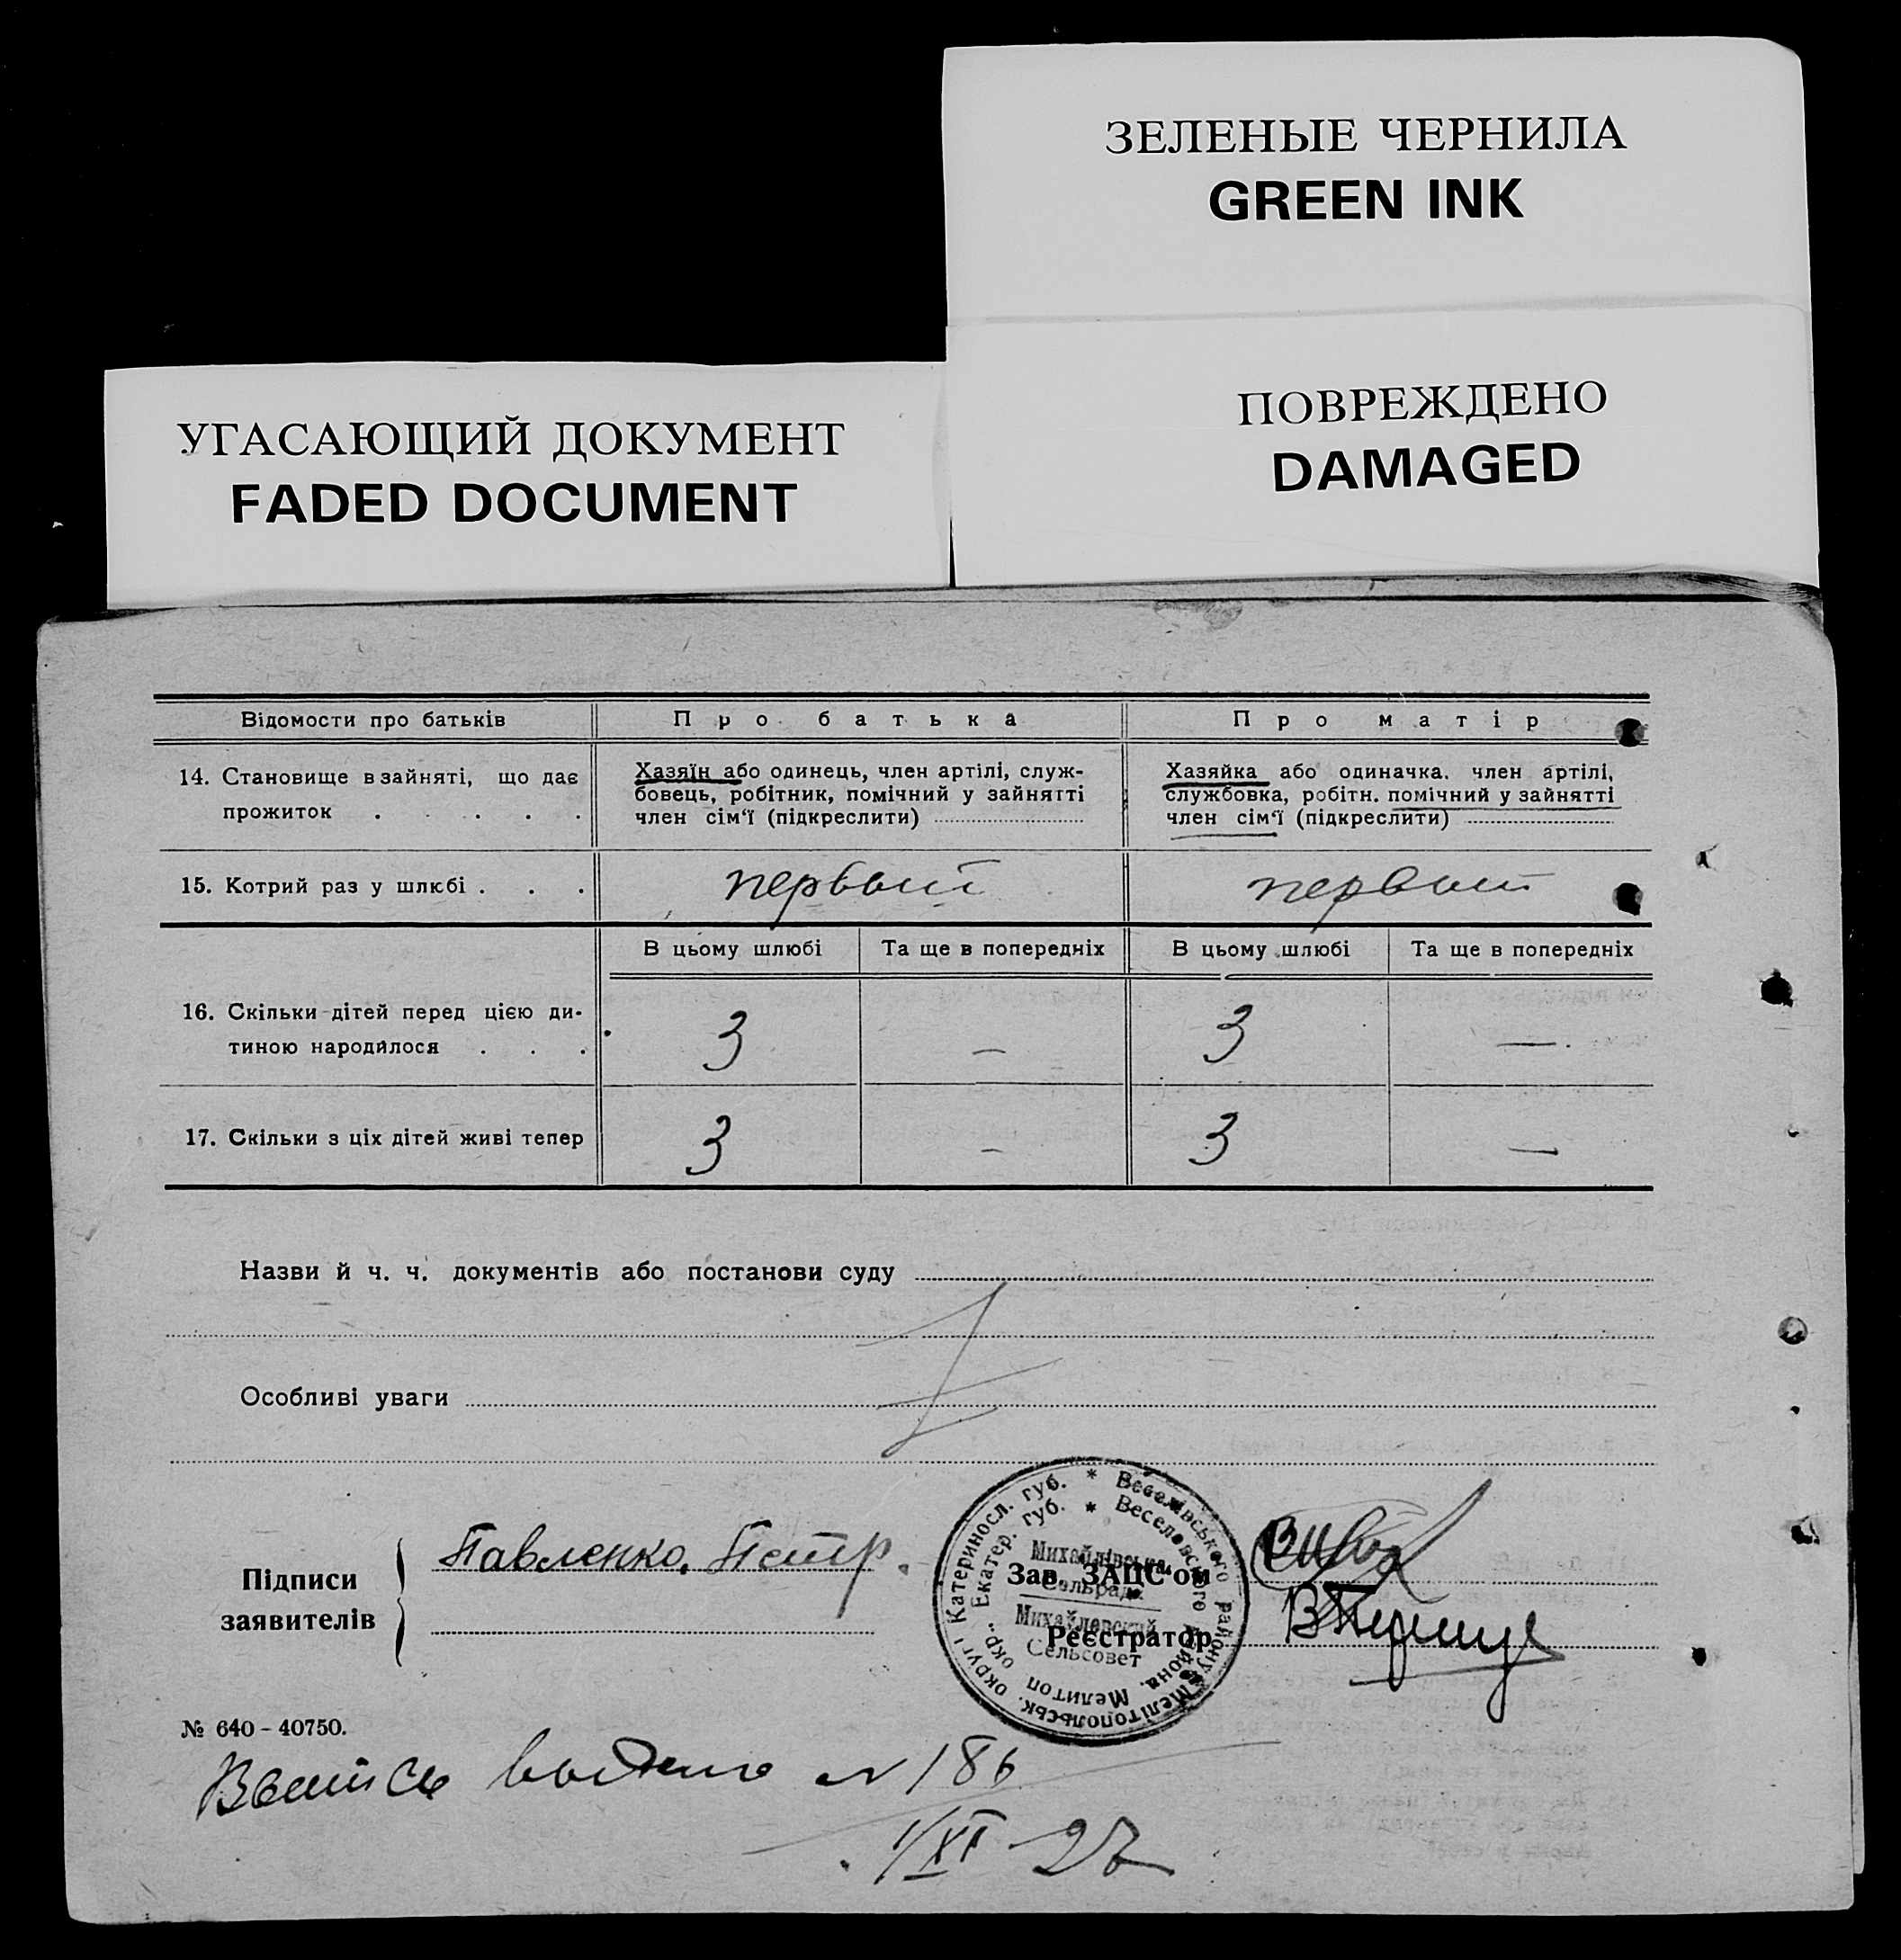 ЗЕЛЕНЫЕ ЧЕРНИЛА
GREEN INK
ПОВРЕЖДЕНО
DAMAGED
УГАСАЮЩИЙ ДОКУМЕНТ
FADED DOCUMENT
Відомости про батьків Про батька Про матір
14. Становище в зайняті, що дає прожиток . . . . .
Хазяїн або одинець, член артілі, служ-
бовець, робітник, помічний у зайнятті
член сім'ї (підкреслити)
Хазяйка або одиначка. член артілі,
службовка, робітн. помічний у зайнятті
член сім'ї (підкреслити)
15. Котрий раз у шлюбі . . . первый первый
В цьому шлюбі Та ще в попередніх В цьому шлюбі Та ще в попередніх
16. Скільки дітей перед цією ди-
тиною народилося . . . 3 — 3 —
17. Скільки з ціх дітей живі тепер 3 — 3 —
Назви й ч. ч. документів або постанови суду
Особливі уваги
Підписи
заявителів
Павленко, Петр.
Зав. ЗАЦС'ом
Реєстратор
* Веселівського району Мелітопольськ. округі Катериносл. губ.
* Веселовского района, Мелитоп. окр., Екатер. губ.
Михайлівська
Сельрада
Михайловский
Сельсовет
№ 640 – 40750.
Выпись выдано № 186
1/XI – 27